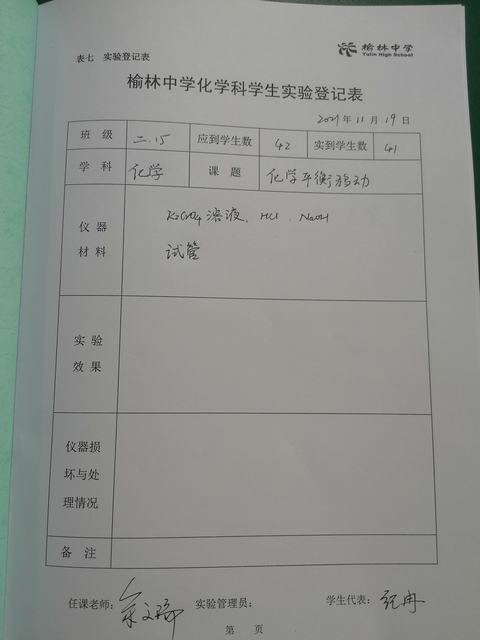 表七 实验登记表
榆林中学
Yulin High School
榆林中学化学科学生实验登记表
2021年11月19日
班级 二.15 应到学生数 42 实到学生数 41
学科 化学 课题 化学平衡移动
仪器材料 K2CrO4溶液、HCl、NaOH
试管
实验效果
仪器损坏与处理情况
备注
任课老师： 实验管理员： 学生代表：
第 页